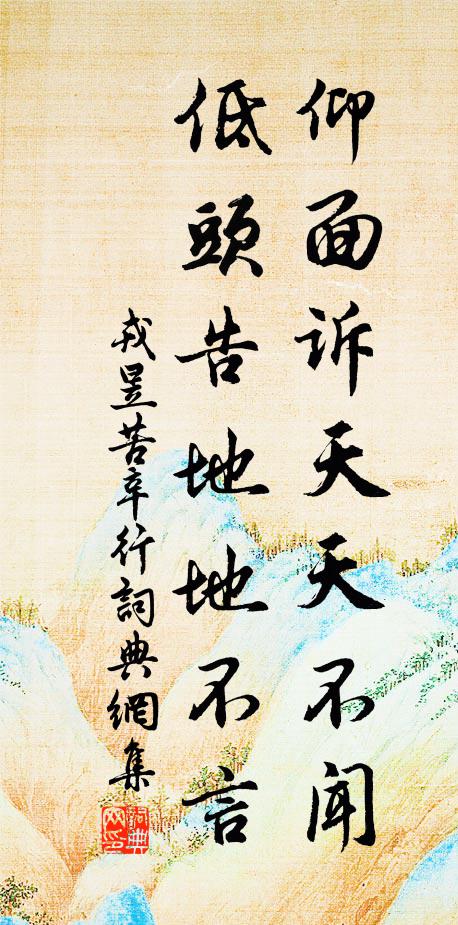 仰面訴天天不聞
低頭告地地不言
戎昱苦辛行詞典網集
詞典
網印